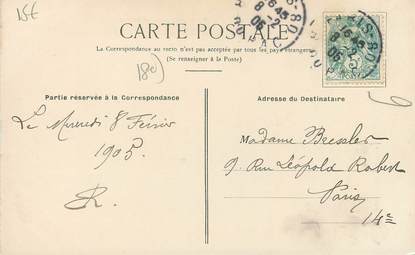 15€
CARTE POSTALE
La Correspondance au recto n'est pas acceptée par tous les pays étrangers
(Se renseigner à la Poste)
180
Partie réservée à la Correspondance
Adresse du Destinataire
Le Mercredi 8 Février
1905.
R.
Madame Bressler
9. Rue Léopold Robert
Paris
14e
6